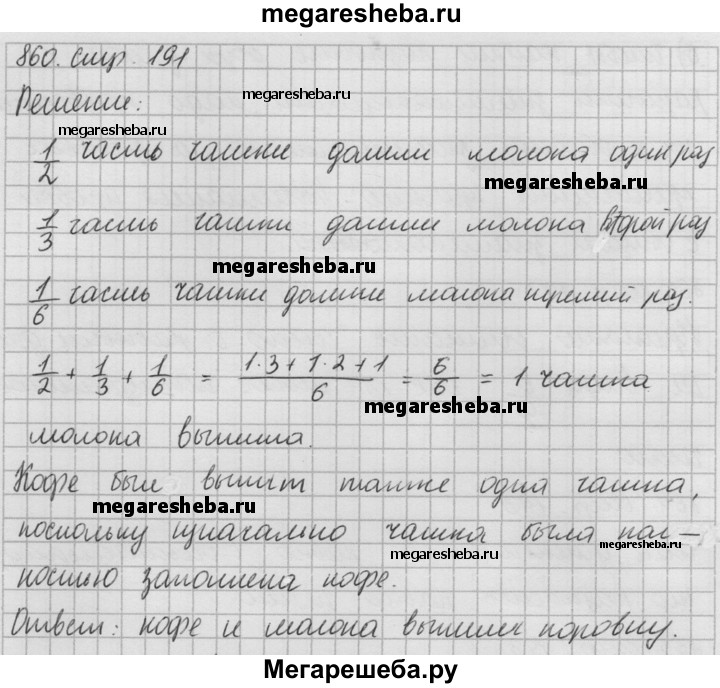 megaresheba.ru
860. стр. 191
Решение:
megaresheba.ru
megaresheba.ru
1/2 часть чашки долили молока один раз
megaresheba.ru
1/3 часть чашки долили молока второй раз
megaresheba.ru
1/6 часть чашки долили молока третий раз.
1/2 + 1/3 + 1/6 = (1·3+1·2+1)/6 = 6/6 = 1 чашка
megaresheba.ru
молока выпила.
Кофе был выпит также одна чашка,
megaresheba.ru
поскольку изначально чашка была пол-
megaresheba.ru
megaresheba.ru
ностью заполнена кофе.
Ответ: кофе и молока выпили поровну.
Мегарешеба.ру